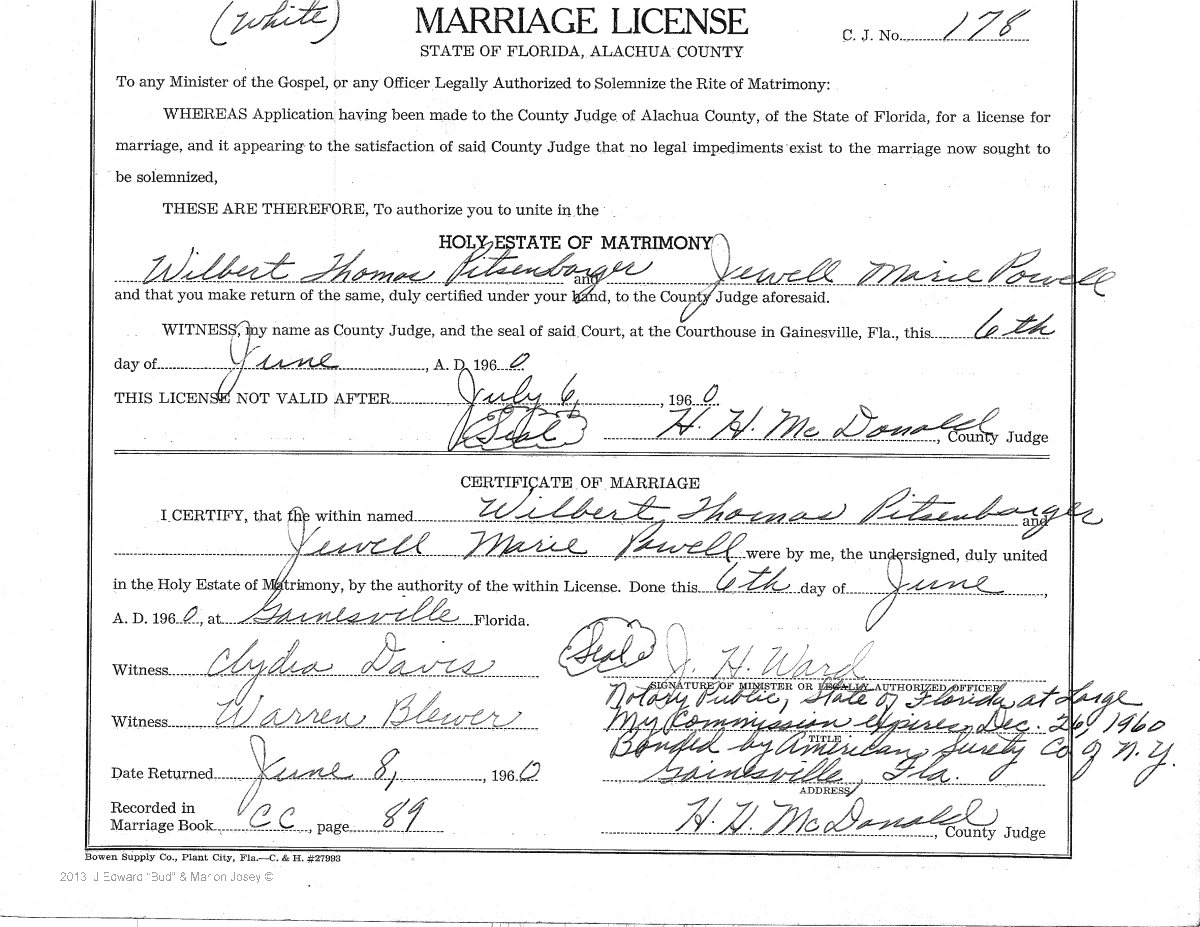 (White)
MARRIAGE LICENSE
C. J. No. 178
STATE OF FLORIDA, ALACHUA COUNTY
To any Minister of the Gospel, or any Officer Legally Authorized to Solemnize the Rite of Matrimony:
WHEREAS Application having been made to the County Judge of Alachua County, of the State of Florida, for a license for
marriage, and it appearing to the satisfaction of said County Judge that no legal impediments exist to the marriage now sought to
be solemnized,
THESE ARE THEREFORE, To authorize you to unite in the
HOLY ESTATE OF MATRIMONY
Wilbert Thomas Pitsenbarger and Jewell Marie Powell
and that you make return of the same, duly certified under your hand, to the County Judge aforesaid.
WITNESS, my name as County Judge, and the seal of said Court, at the Courthouse in Gainesville, Fla., this 6th
day of June, A. D. 1960.
THIS LICENSE NOT VALID AFTER July 6, 1960.
(Seal) H. H. McDonald, County Judge
CERTIFICATE OF MARRIAGE
I CERTIFY, that the within named Wilbert Thomas Pitsenbarger and
Jewell Marie Powell were by me, the undersigned, duly united
in the Holy Estate of Matrimony, by the authority of the within License. Done this 6th day of June,
A. D. 1960, at Gainesville Florida.
Witness Clydia Davis (Seal) J. H. Ward
SIGNATURE OF MINISTER OR LEGALLY AUTHORIZED OFFICER
Notary Public, State of Florida at Large
Witness Warren Blewer My Commission expires Dec. 26, 1960
TITLE
Bonded by American Surety Co of N. Y.
Date Returned June 8, 1960 Gainesville, Fla.
ADDRESS
Recorded in
Marriage Book CC, page 89 H. H. McDonald, County Judge
Bowen Supply Co., Plant City, Fla.—C. & H. #27993
2013 J Edward "Bud" & Marion Josey ©